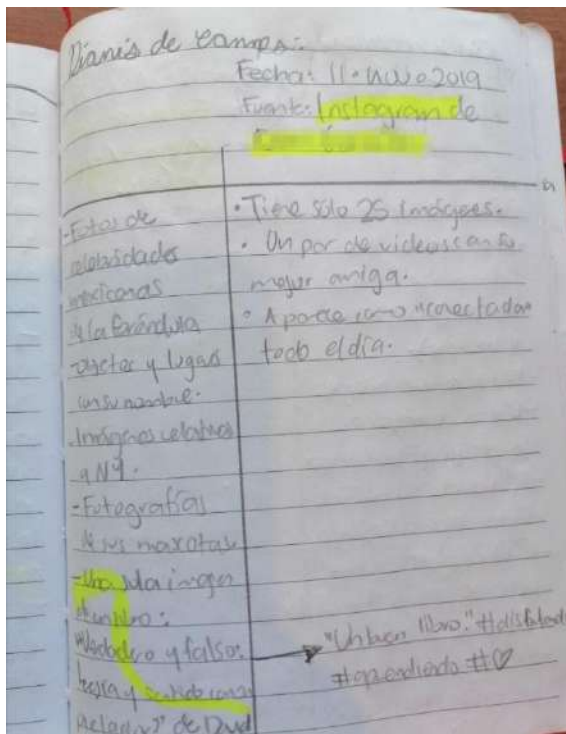 Diario de campo:
Fecha: 11 · nov · 2019
Fuente: Instagram de
-Fotos de
celebridades
mexicanas
y la farándula
y lugares
con su nombre.
-Imágenes relativas
a NY.
-Fotografías
de sus mascotas
-Una sola imagen
de un libro:
"Verdadero y falso:
teoría y sentido común
" de Dvd
• Tiene sólo 25 imágenes.
• Un par de videos con su
mejor amiga.
• Aparece como "conectada"
todo el día.
"Un buen libro." #disfrutando
#aprendiendo #♡